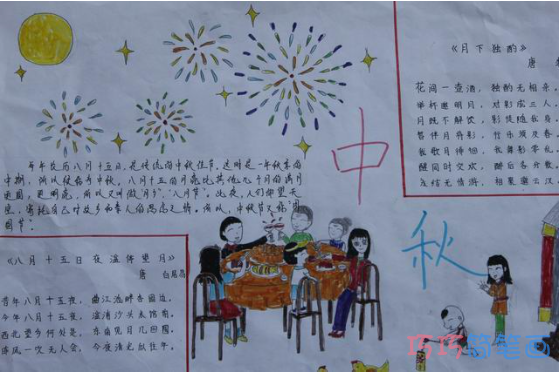 《月下独酌》
唐
花间一壶酒，独酌无相亲，
举杯邀明月，对影成三人，
月既不解饮，影徒随我身，
暂伴月将影，行乐须及春，
我歌月徘徊，我舞影零乱，
醒同时交欢，醉后各分散，
永结无情游，相期邈云汉，
中
秋
每年农历八月十五日，是传统的中秋佳节，这时是一年秋季的
中期，所以被称为中秋，八月十五的月亮比其他几个月的满月
更圆，更明亮，所以又叫做"月夕"，"八月节"，此夜，人们仰望天
空，寄托自己对故乡和亲人的思念之情，所以，中秋节又称"团
圆节"。
《八月十五日夜湓亭望月》
唐 白居易
昔年八月十五夜，曲江池畔杏园边，
今年八月十五夜，湓浦沙头水馆前，
西北望乡何处是，东南见月几回圆，
昨风一吹无人会，今夜清光似往年，
巧巧简笔画